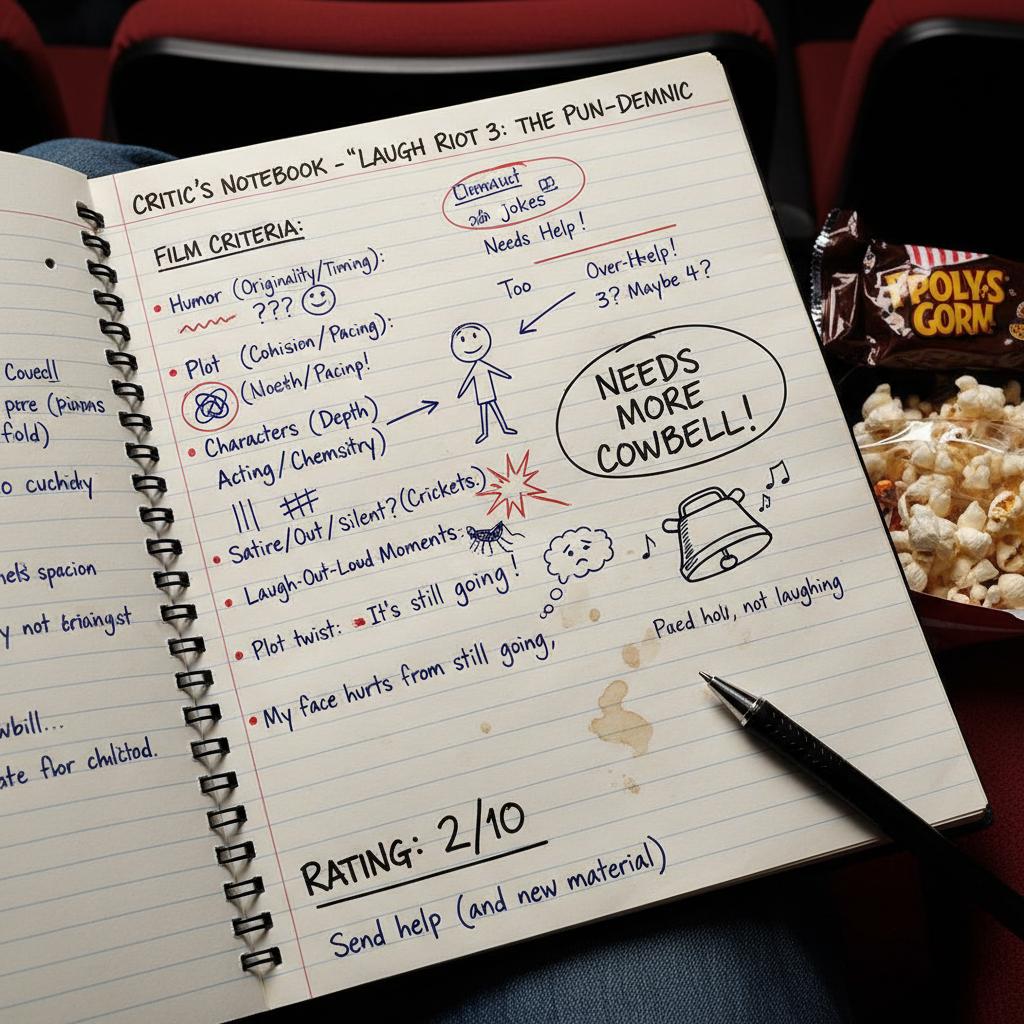 Covell
pore (
fold)
o cuchidy
spacion
y not
wbill...
ate flor chilctod.
CRITIC'S NOTEBOOK - "LAUGH RIOT 3: THE PUN-DEMNIC
FILM CRITERIA:
jokes
Needs Help!
Too
Over-Hkelp!
3? Maybe 4?
• Humor (Originality/Timing):
???
• Plot (Cohision/Pacing):
(Nloeth/Pacinp!
• Characters (Depth)
Acting/Chemsitry)
NEEDS
MORE
COWBELL!
• Satire/Out/silent? (Crickets:)
• Laugh-Out-Loud Moments:
• Plot twist: • It's still going!
• My face hurts from still going,
Paed holi, not laughing
RATING: 2/10
Send help (and new material)
POLY'S
GORM